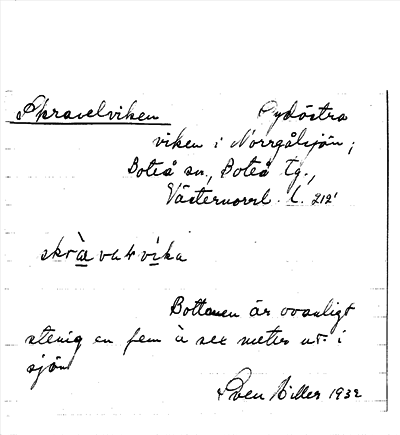 Skravelviken Sydöstra
viken i Norrgålsjön,
Boteå sn., Boteå tg.,
Västernorrl. l. 212'
skràvɐlvika
Bottenen är ovanligt
stenig en fem à sex meter ut i
sjön
Sven Hiller 1932